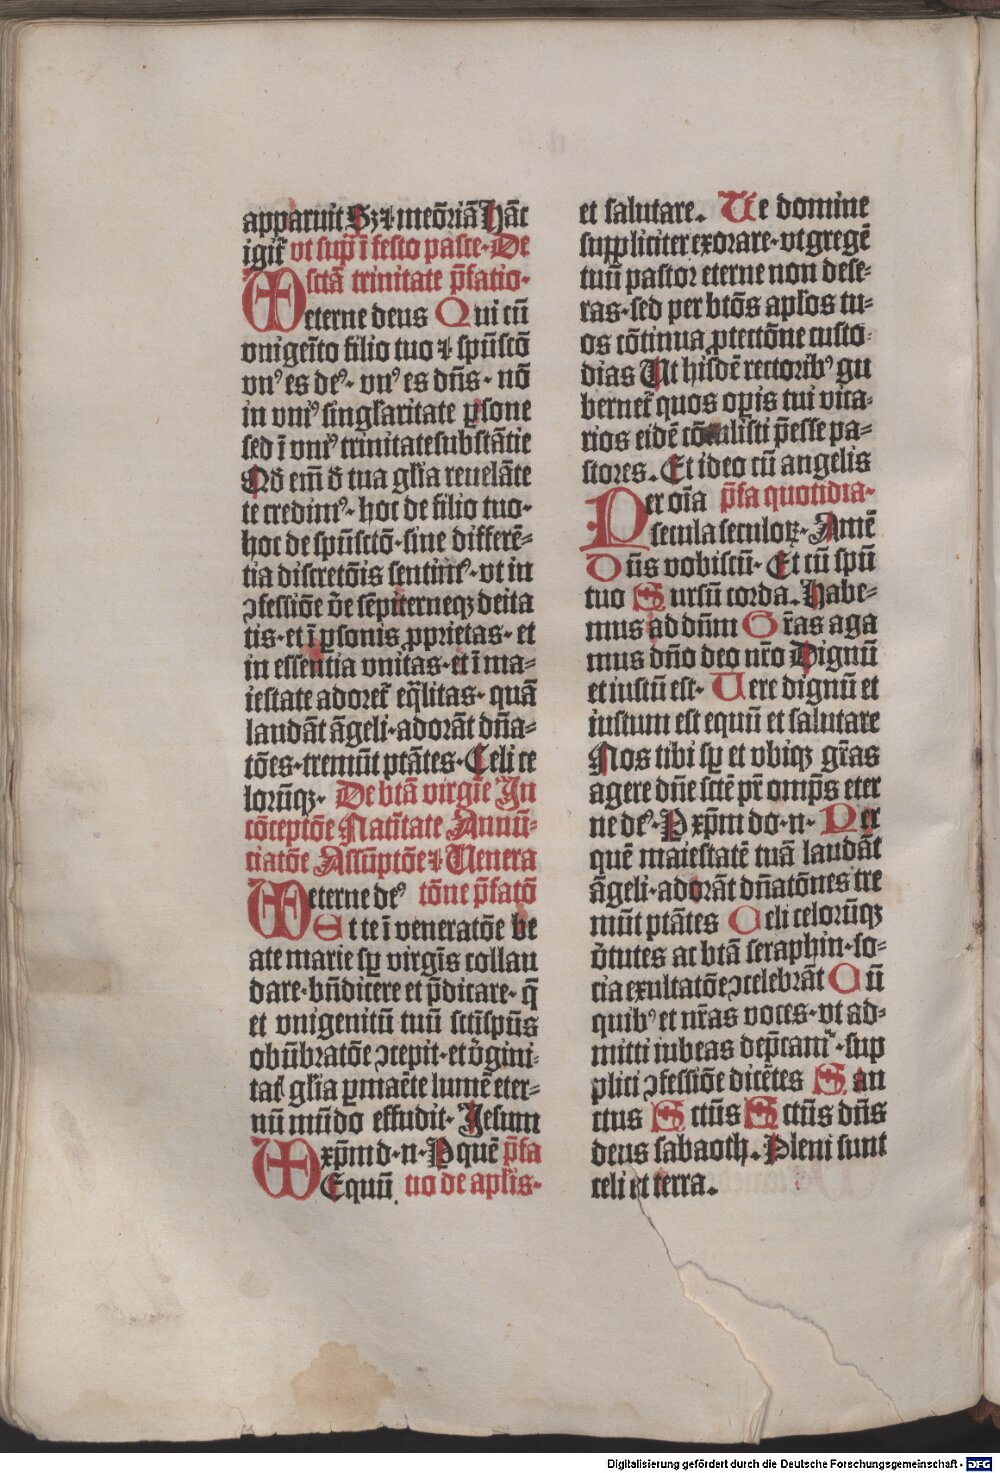 apparuit Sꝫ ⁊ meõriã Hãc
igit̃ vt sup̃ ĩ festo pasce. De
sctã trinitate p̃fatio.
eterne deus Qui cũ
vnigeĩto filio tuo ⁊ spũscõ
vnꝰ es deꝰ. vnꝰ es dñs. nõ
in vniꝰ singl̃aritate ꝑsone
sed ĩ vniꝰ trinitatesubstãtie
Qđ em̃ đ tua gl̃ia reuelãte
te credimꝰ. hoc de filio tuo.
hoc de spũsctõ. sine differẽ-
tia discretõis sentimꝰ. vt in
ꝯfessiõe v̾e sẽpiterneqꝫ deita
tis. et ĩ ꝑsonis ꝓprietas. et
in essentia vnitas. et ĩ ma-
iestate adoret̃ eq̃litas. quã
laudãt ãgeli. adorãt dña-
tões. tremũt ptãtes. Celi ce
lorũqꝫ. De btã virgĩe In
cõceptõe Natĩtate Annũ-
ciatõe Assũptõe ⁊ Venera
eterne deꝰ tõne p̃fatõ
Et te ĩ veneratõe be
ate marie sꝑ virgĩs collau
dare. bñdicere et p̃dicare. q̃
et vnigenitũ tuũ sctĩspũs
obũbratõe ꝯcepit. et v̾gini-
tat̃ gl̃ia ꝑmaẽte lumẽ eter-
nũ mũdo effudit. Jesum
xp̃m d. n. P quẽ p̃fa
Equũ no de apl̃is.
et salutare. Te domine
suppliciter exorare. vt gregẽ
tuũ pastor eterne non dese-
ras. sed per btõs apl̃os tu-
os cõtinua ꝓtectõne custo-
dias Ut hisdẽ rectoribꝰ gu
bernet̃ quos oꝑis tui vica-
rios eidẽ cõtulisti p̃esse pa-
stores. Et ideo cũ angelis
Per oĩa p̃fa quotidia-
secula seculoꝝ. Amẽ
Dñs vobiscũ. Et cũ spũ
tuo Sursũ corda. Habe-
mus ad dñm Gr̃as aga
mus dño deo nr̃o Dignũ
et iustũ est. Uere dignũ et
iustum est equũ et salutare
Nos tibi sꝑ et vbiqꝫ gr̃as
agere dñe sctẽ pr̃ omp̃s eter
ne deꝰ. P xp̃m do. n. Per
quẽ maiestatẽ tuã laudãt
ãgeli. adorãt dñatõnes tre
mũt ptãtes Celi celorũqꝫ
v̾tutes ac btã seraphin. so-
cia exultatõe ꝯcelebrãt Cũ
quibꝰ et nr̃as voces. vt ad-
mitti iubeas dep̃camᷣ. sup
plici ꝯfessiõe dicẽtes San
ctus Sctũs Sctũs dñs
deus sabaoth. Pleni sunt
celi et terra.
Digitalisierung gefördert durch die Deutsche Forschungsgemeinschaft - DFG